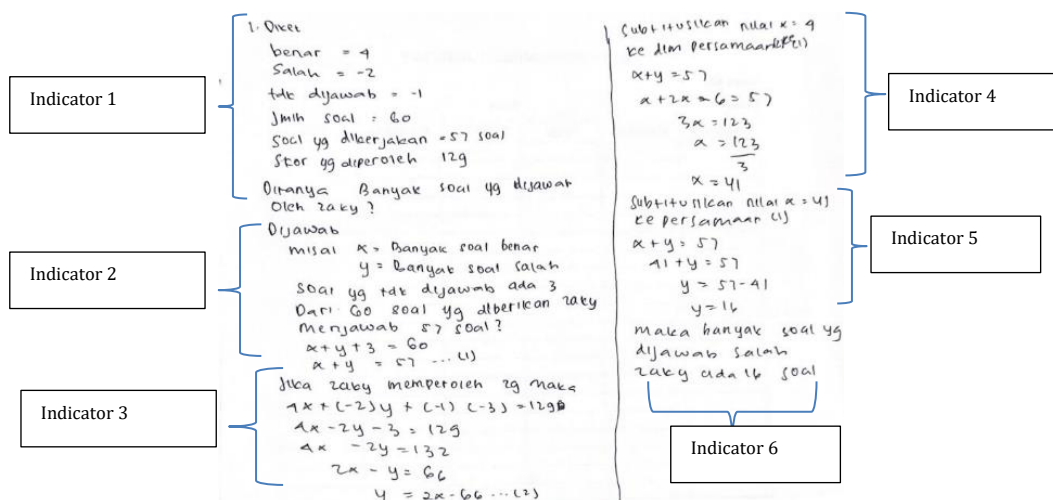 Indicator 1
1. Diket
benar = 4
Salah = -2
tdk dijawab = -1
Jmlh soal = 60
Soal yg dikerjakan = 57 soal
Skor yg diperoleh 129
Ditanya Banyak soal yg dijawab
oleh zaky?
Indicator 2
Dijawab
misal x = Banyak soal benar
y = Banyak soal salah
Soal yg tdk dijawab ada 3
Dari 60 soal yg diberikan zaky
menjawab 57 soal?
x + y + 3 = 60
x + y = 57 ... (1)
Indicator 3
Jika zaky memperoleh 29 maka
4x + (-2)y + (-1) (-3) = 129
4x - 2y - 3 = 129
4x - 2y = 132
2x - y = 66
y = 2x - 66 ... (2)
Subtitusikan nilai x = 4
ke dlm persamaan (1)
x + y = 57
x + 2x - 6 = 57
3x = 123
x = 123
3
x = 41
Indicator 4
Subtitusikan nilai x = 41
ke persamaan (1)
x + y = 57
41 + y = 57
y = 57 - 41
y = 16
Indicator 5
maka banyak soal yg
dijawab salah
zaky ada 16 soal
Indicator 6